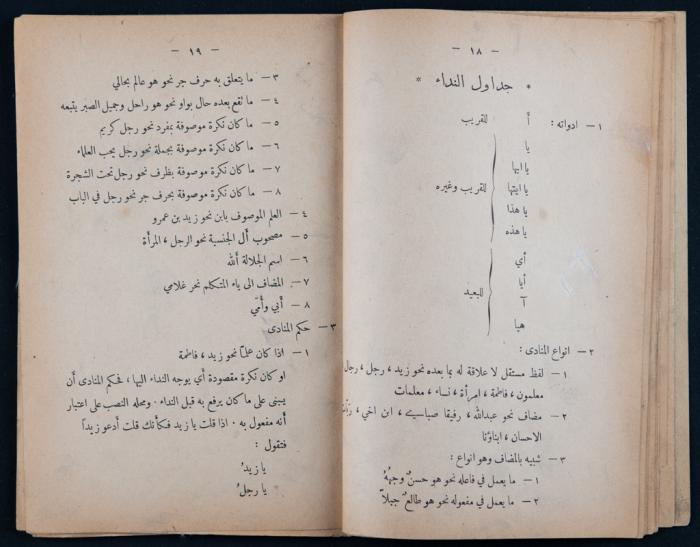 — ١٨ —
* جداول النداء *
١ — ادواته : أ للقريب
يا
يا ايها
يا ايتها للقريب وغيره
يا هذا
يا هذه
أي
أيا
آ للبعيد
هيا
٢ — انواع المنادى :
١ — لفظ مستقل لا علاقة له بما بعده نحو زيد ، رجل ، رجل
معلمون ، فاطمة ، امرأة ، نساء ، معلمات
٢ — مضاف نحو عبدالله ، رفيقا صباي ، ابن اخي ،
الاحسان ، ابناؤنا
٣ — شبيه بالمضاف وهو انواع :
١ — ما يعمل في فاعله نحو هو حسنٌ وجههُ
٢ — ما يعمل في مفعوله نحو هو طالعٌ جبلاً
— ١٩ —
٣ — ما يتعلق به حرف جر نحو هو عالم بحالي
٤ — ما تقع بعده حال بواو نحو هو راحل وجميل الصبر يتبعه
٥ — ما كان نكرة موصوفة بمفرد نحو رجل كريم
٦ — ما كان نكرة موصوفة بجملة نحو رجل يحب العلماء
٧ — ما كان نكرة موصوفة بظرف نحو رجل تحت الشجرة
٨ — ما كان نكرة موصوفة بحرف جر نحو رجل في الباب
٤ — العلم الموصوف بابن نحو زيد بن عمرو
٥ — مصحوب أل الجنسية نحو الرجل ، المرأة
٦ — اسم الجلالة ألله
٧ — المضاف الى ياء المتكلم نحو غلامي
٨ — أبي وأمّي
٣ — حكم المنادى
١ — اذا كان علماً نحو زيد ، فاطمة
او كان نكرة مقصودة أي يوجه النداء اليها ، فحكم المنادى أن
يبنى على ما كان يرفع به قبل النداء . ومحله النصب على اعتبار
أنه مفعول به . اذا قلت يا زيد فكأنك قلت أدعو زيداً
فتقول :
يا زيدُ
يا رجلُ